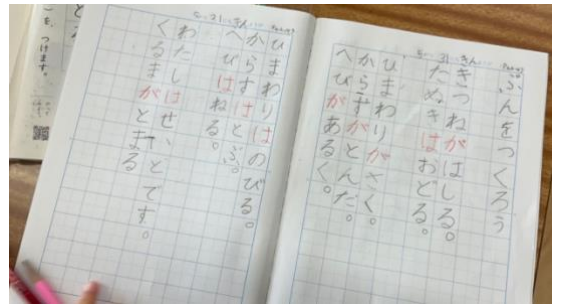 ぶんをつくろう
きつねがはしる。
たぬきはおどる。
ひまわりがさく。
からすがとんだ。
へびがあるく。
ひまわりはのびる。
からすはとぶ。
へびはねる。
わたしはせいとです。
くるまがとまる
を、つけます。